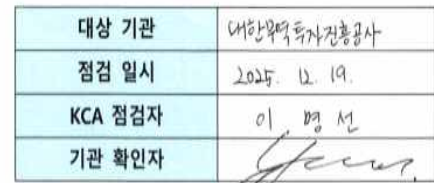 대상 기관 대한무역투자진흥공사
점검 일시 2025. 12. 19.
KCA 점검자 이 명 선
기관 확인자